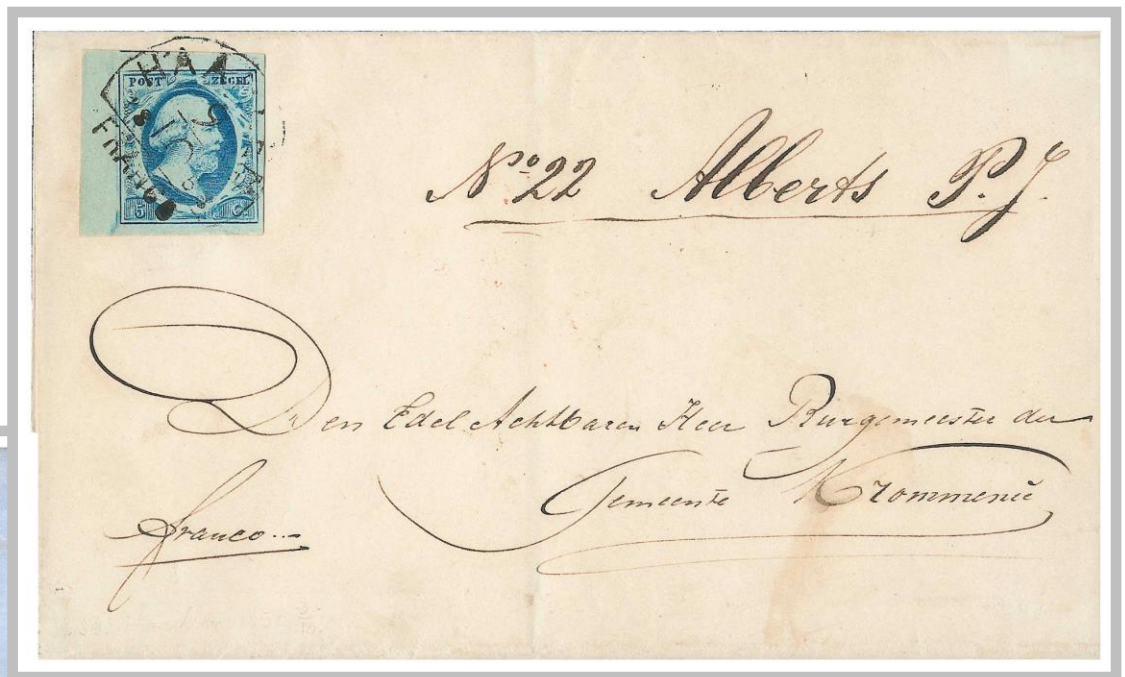 POST ZEGEL
5 C
FRANCO
No 22 Alberts P. J.
Den Edel Achtbaren Heer Burgemeester der
Gemeente Krommenie
franco